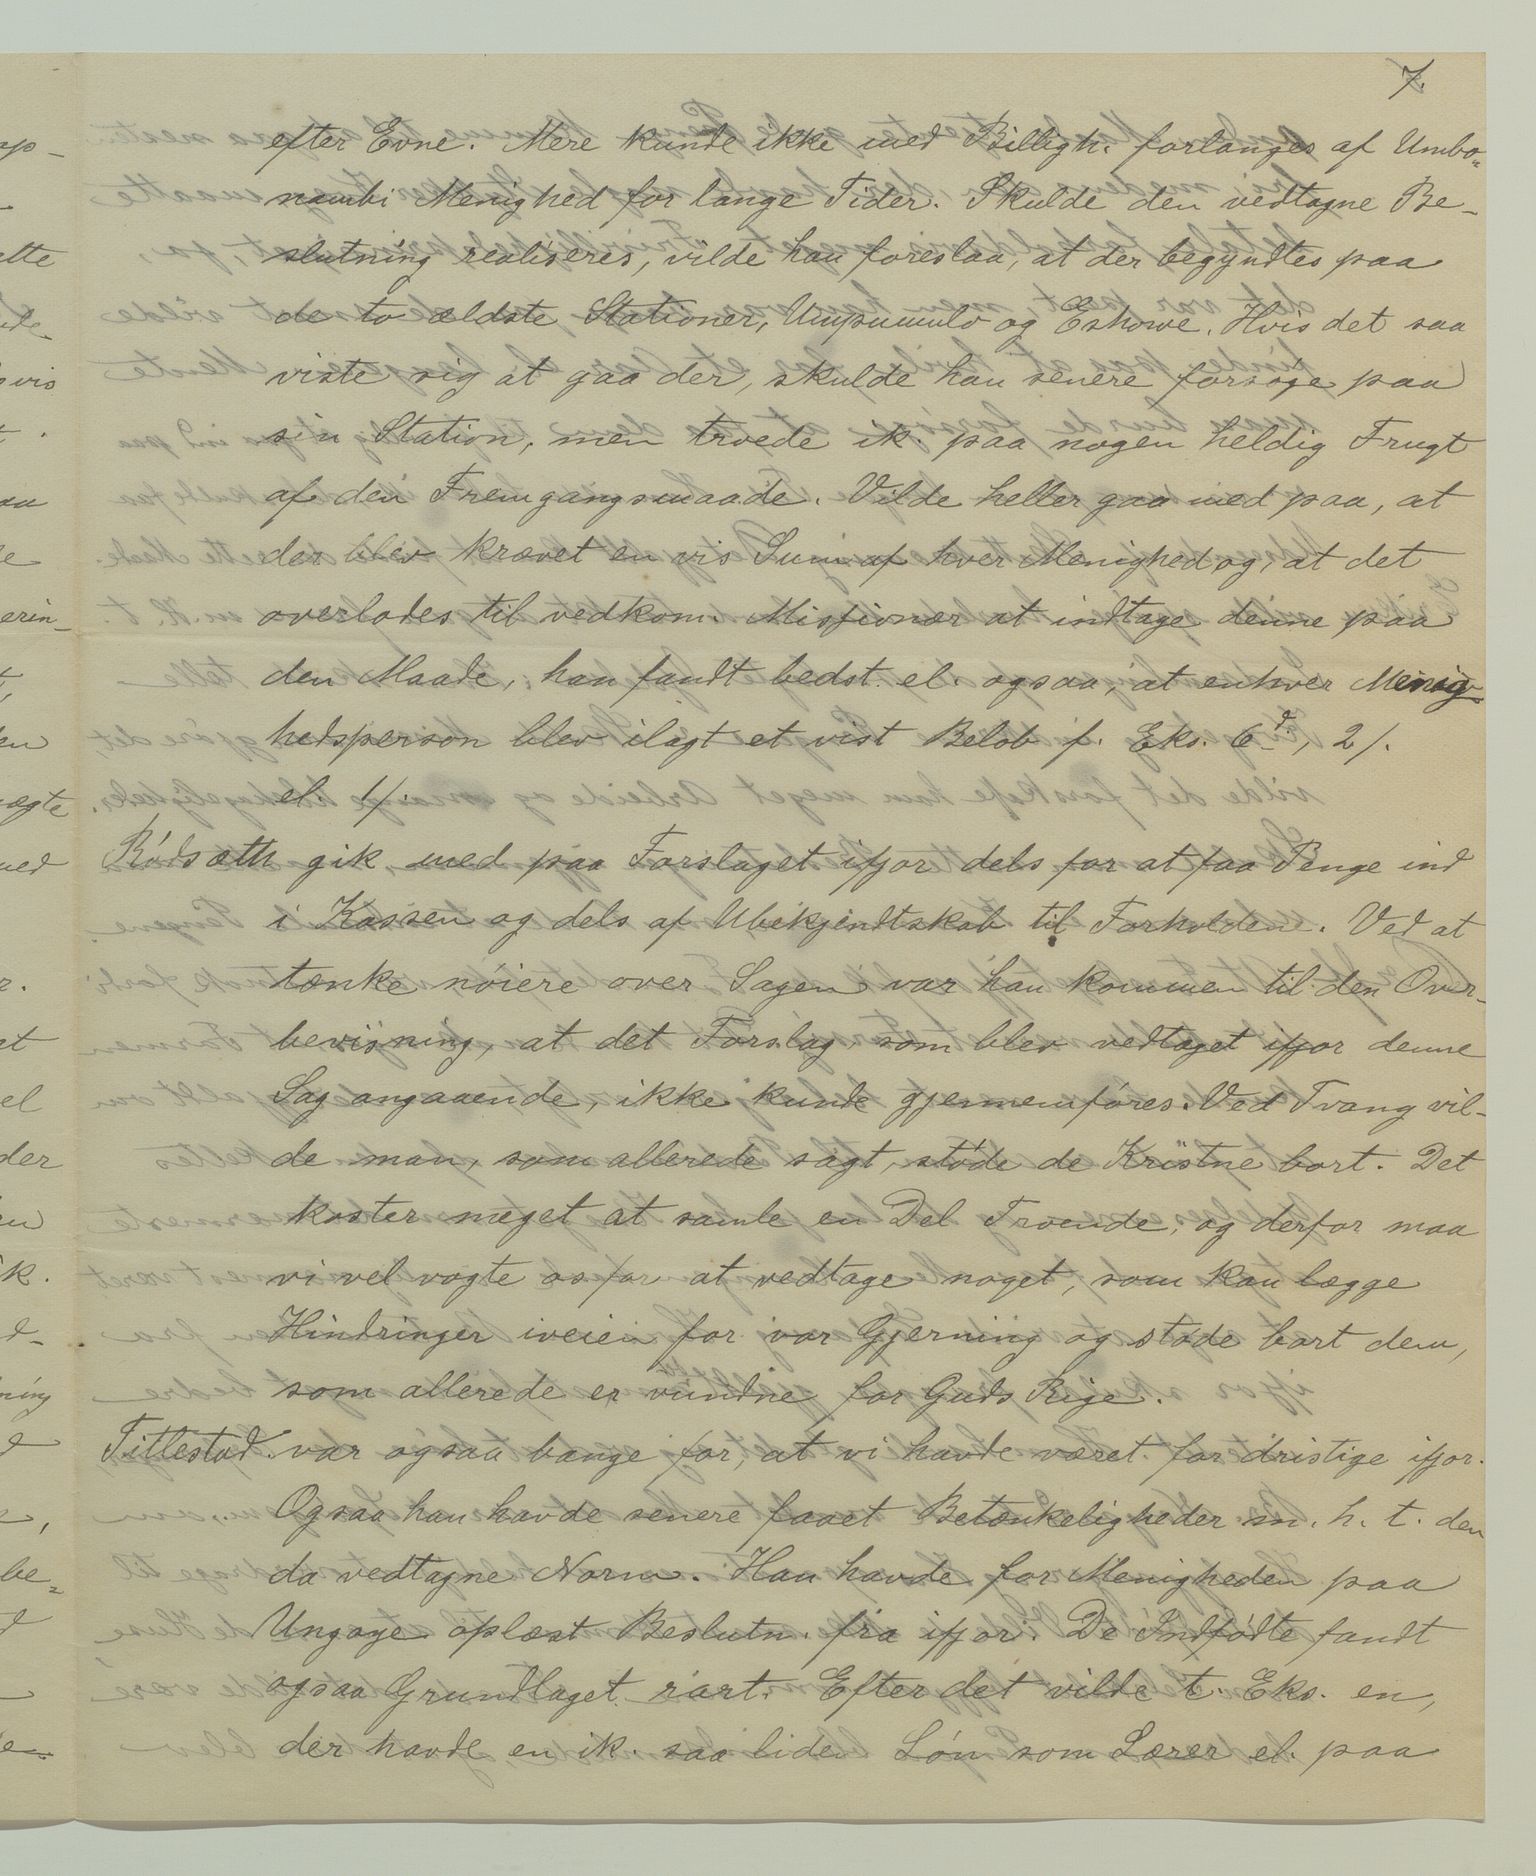 7.
efter Evne. Mere kunde ikke med Billigh. forlanges af Umbo-
nambi Menighed for lange Tider. Skulde den vedtagne Be-
slutning realiseres, vilde han foreslaa, at der begyndtes paa
de to ældste Stationer, Umpumulo og Eshowe. Hvis det saa
viste sig at gaa der, skulde han senere forsøge paa
sin Station, men troede ik. paa nogen heldig Frugt
af den Fremgangsmaade. Vilde heller gaa med paa, at
der blev krævet en vis Sum af hver Menighed og, at det
overlodes til vedkom. Missionær at indtage denne paa
den Maade, han fandt bedst. el. ogsaa, at enhver Menig-
hedsperson blev ilagt et vist Beløb f. Eks. 6d, 2/.
el. 1/.
Rödsæth gik med paa Forslaget ifjor dels for at faa Penge ind
i Kassen og dels af Ubekjendtskab til Forholdene. Ved at
tænke nöiere over Sagen var han kommen til den Over-
bevisning, at det Forslag, som blev vedtaget ifjor denne
Sag angaaende, ikke kunde gjennemföres. Ved Tvang vil-
de man, som allerede sagt, stöde de Kristne bort. Det
koster meget at samle en Del Troende, og derfor maa
vi vel vogte os for at vedtage noget, som kan lægge
Hindringer iveien for vor Gjerning og støde bort dem,
som allerede er vundne for Guds Rige.
Titlestad. var ogsaa bange for, at vi havde været for dristige ifjor.
Ogsaa han havde senere faaet Betænkeligheder m. h. t. den
da vedtagne Norm. Han havde for Menigheden paa
Ungoye oplæst Beslutn. fra ifjor. De Indfödte fandt
ogsaa Grundlaget rart. Efter det vilde t. Eks. en,
der havde en ik. saa liden Lön som Lærer el. paa